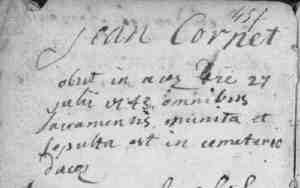 Jean Cornet
obiit in acoz die 27
julii 1743 omnibus
sacramentis munita et
sepulta est in cemeterio
dacoz